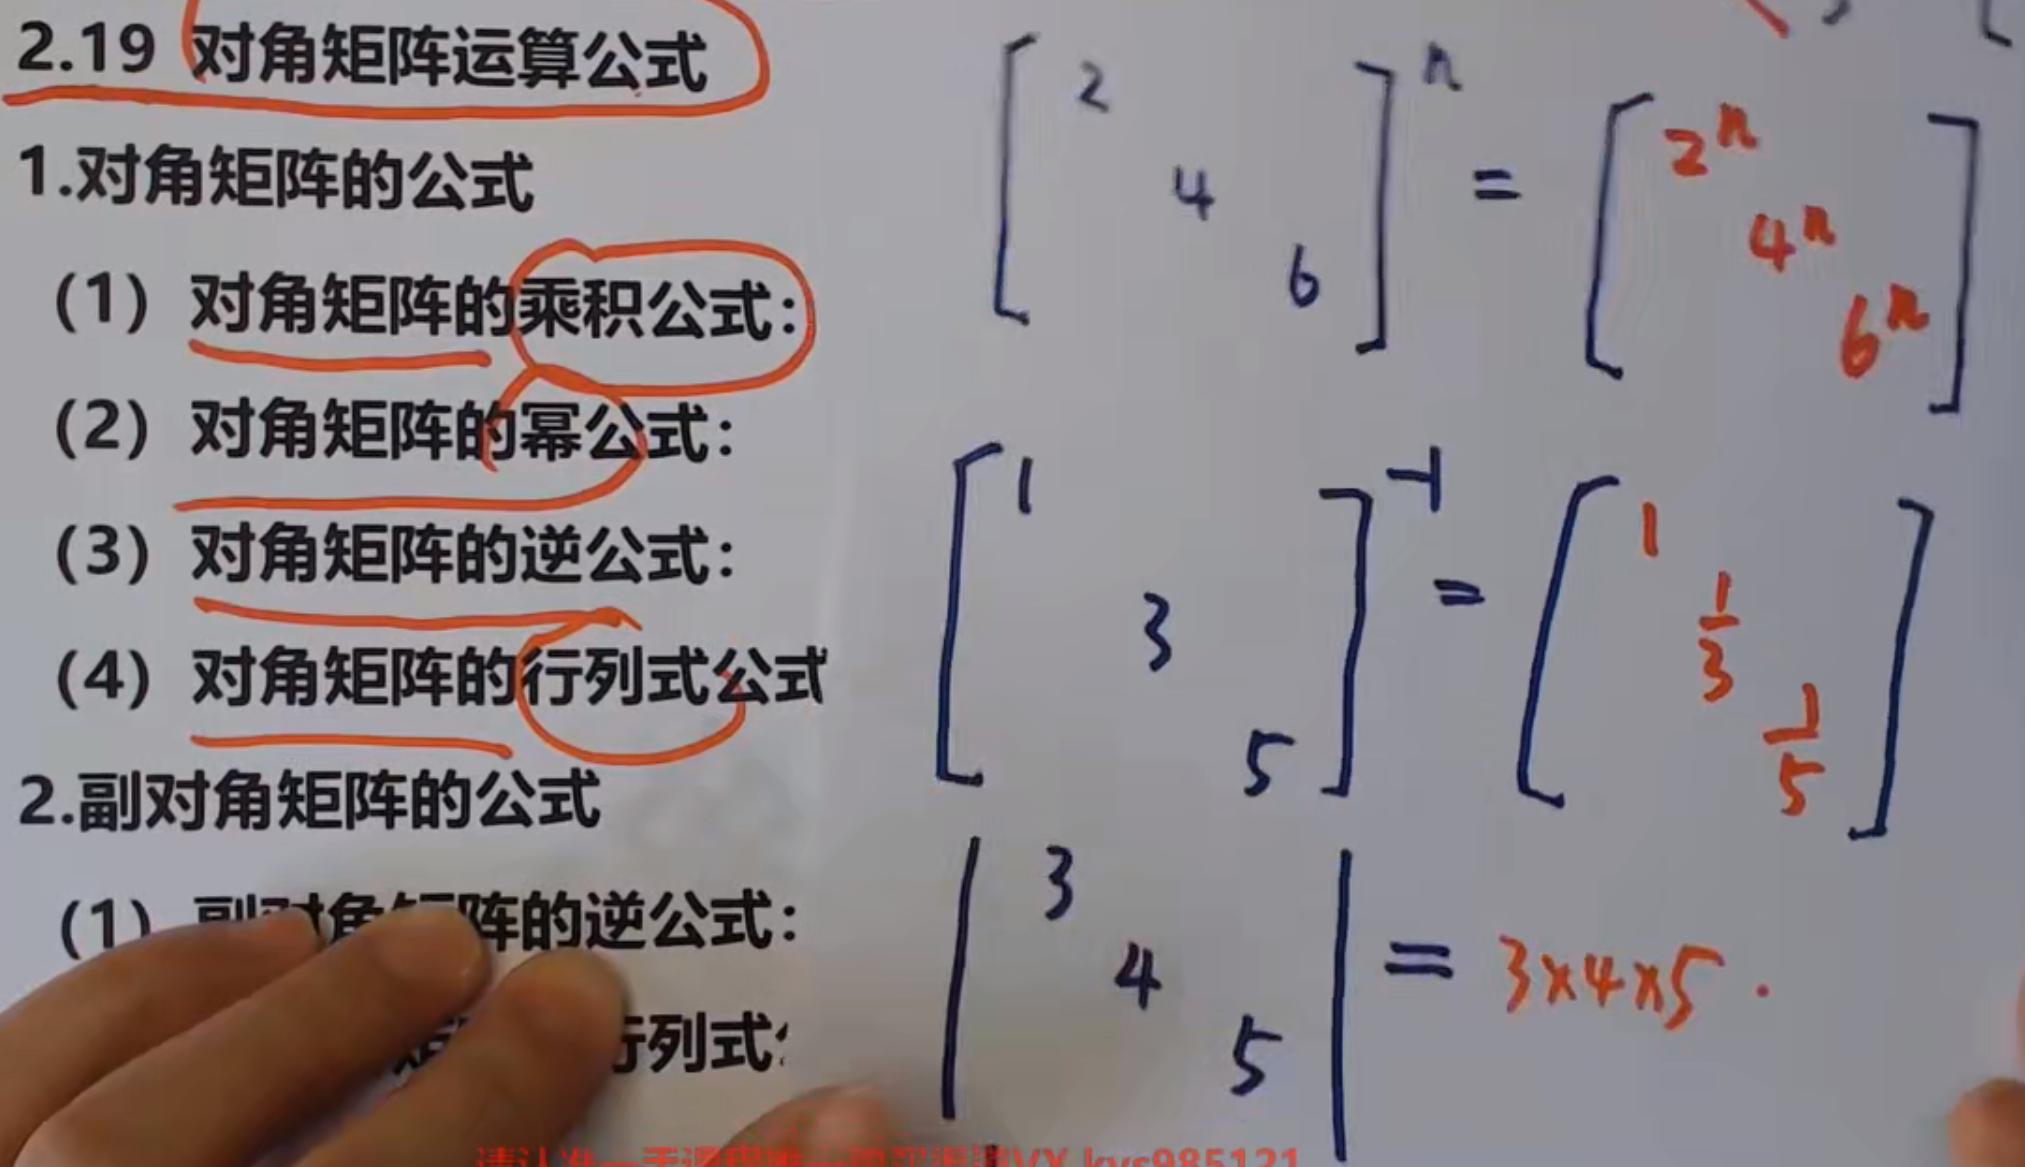 2.19 对角矩阵运算公式
1.对角矩阵的公式
（1）对角矩阵的乘积公式：
（2）对角矩阵的幂公式：
（3）对角矩阵的逆公式：
（4）对角矩阵的行列式公式
2.副对角矩阵的公式
（1）副对角矩阵的逆公式：
行列式
[2 4 6]ⁿ = [2ⁿ 4ⁿ 6ⁿ]
[1 3 5]⁻¹ = [1 1/3 1/5]
|3 4 5| = 3×4×5.